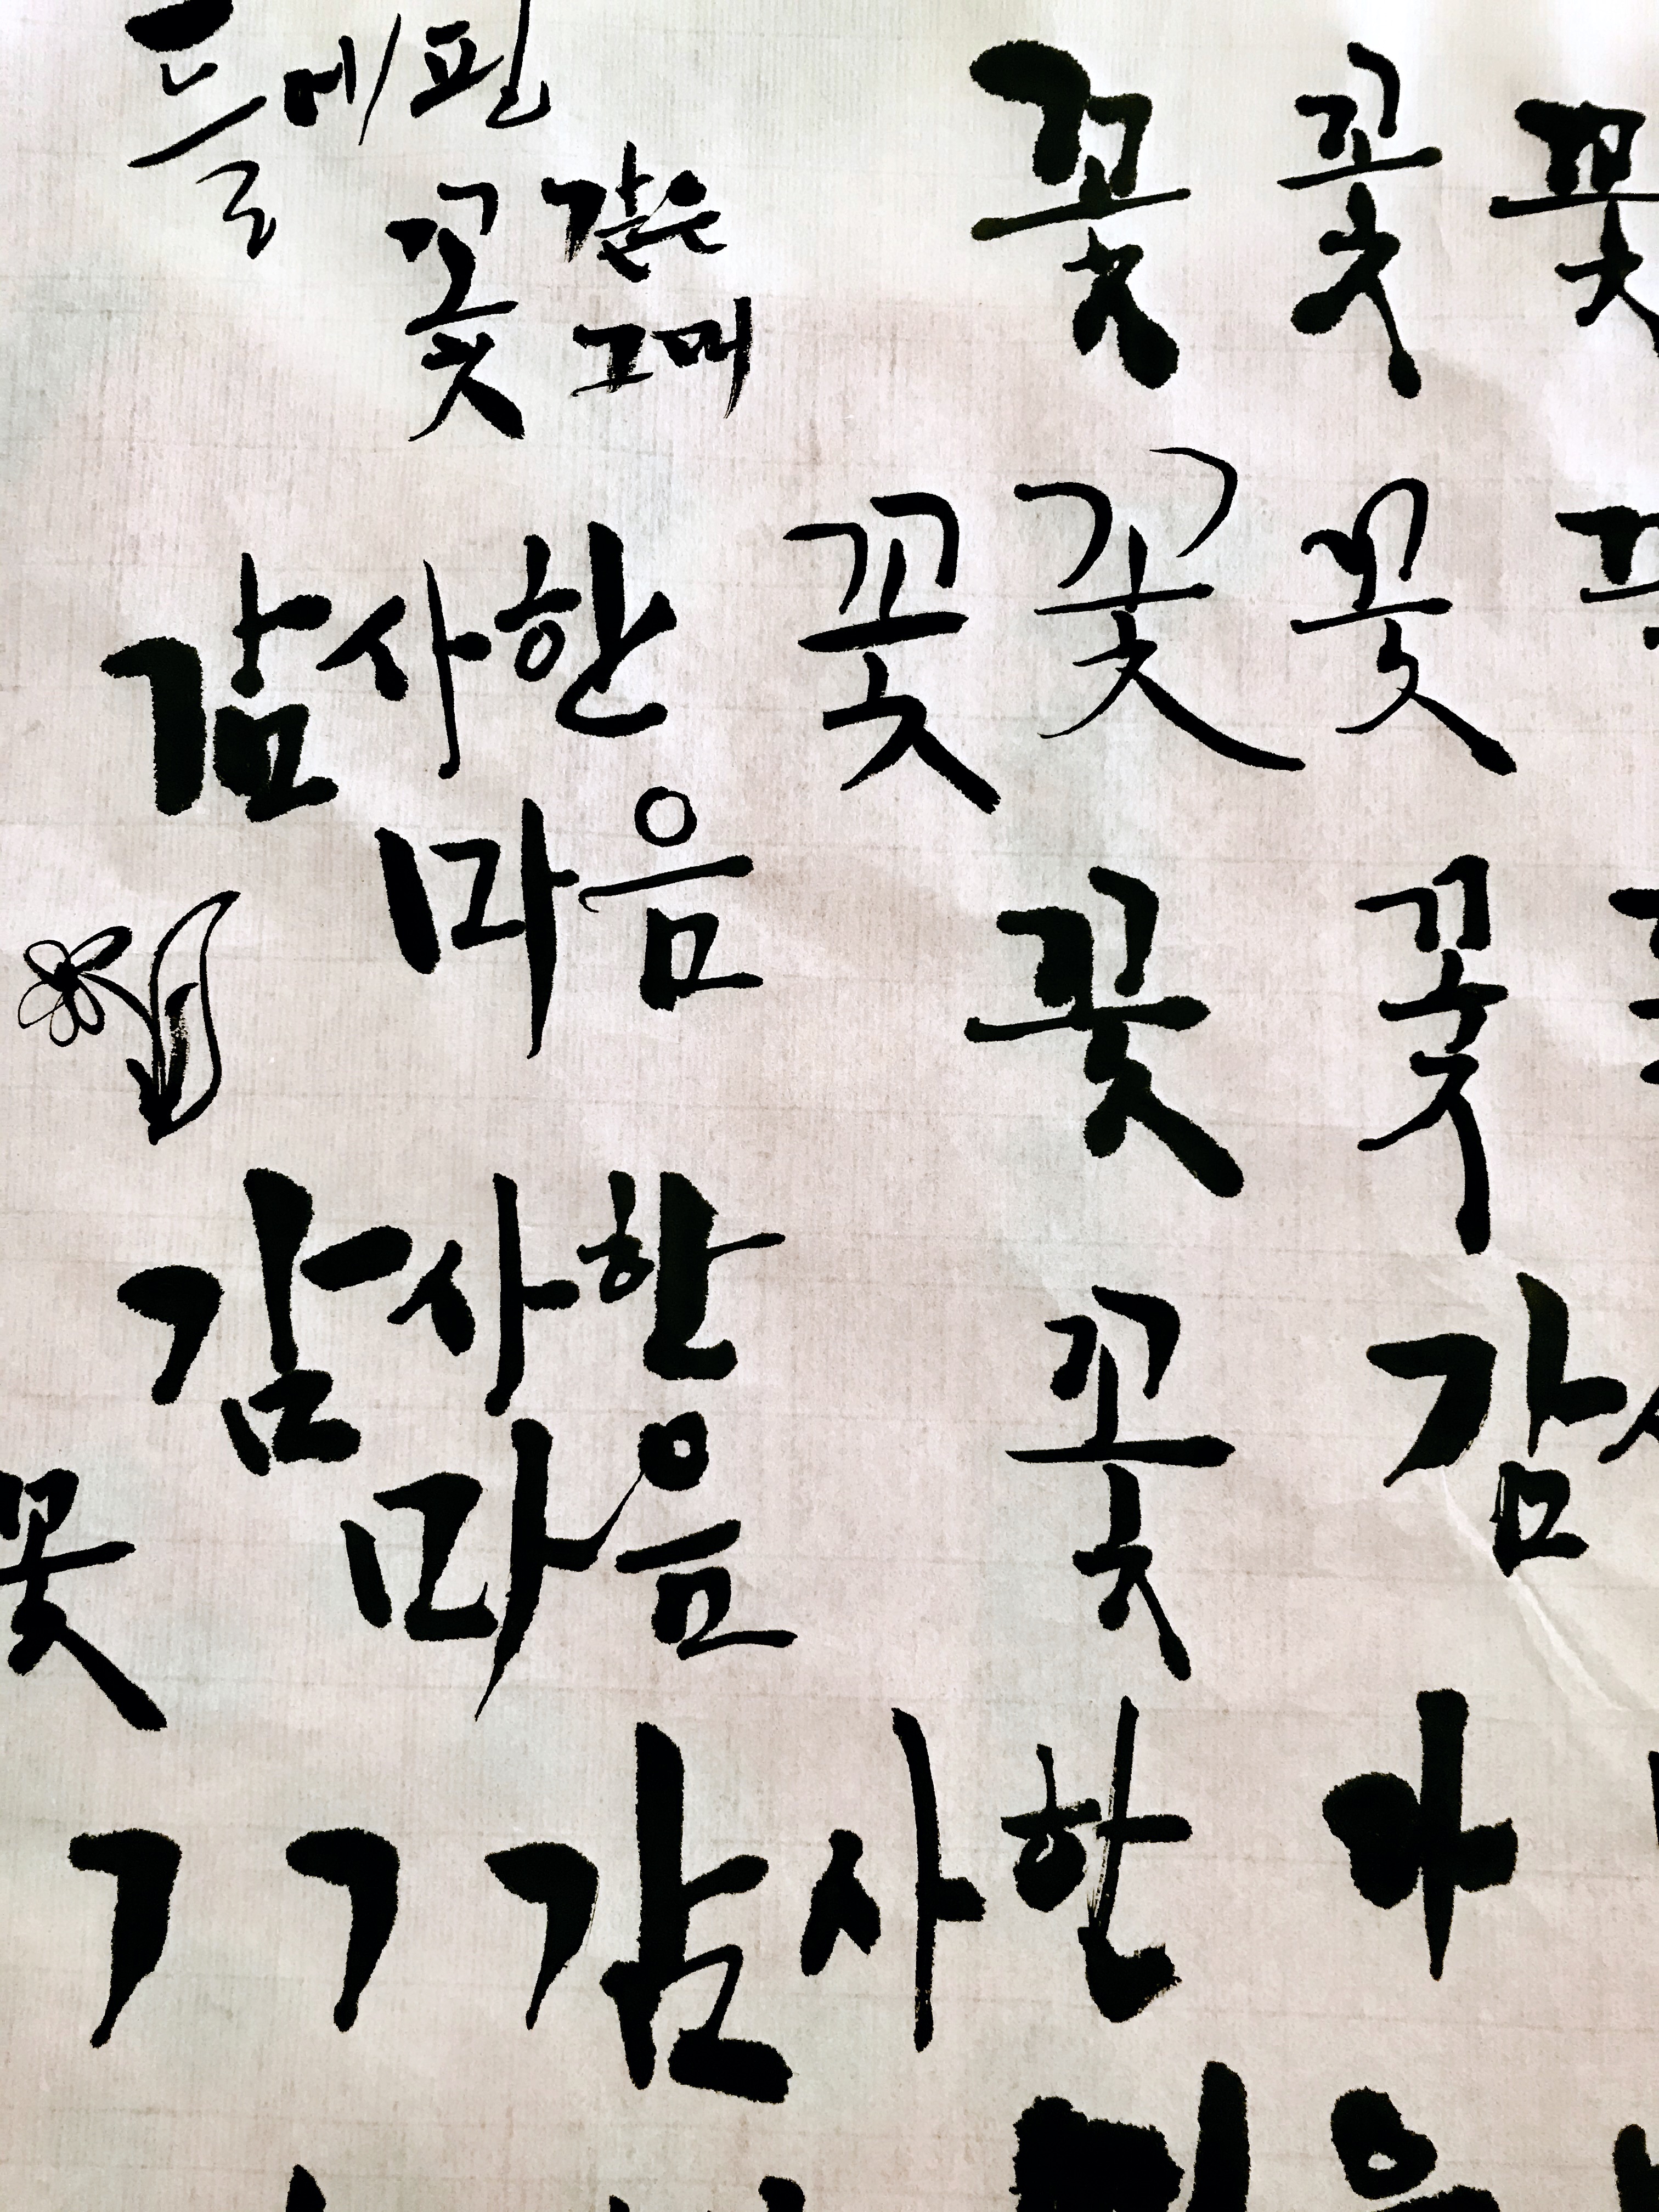 들에 핀
꽃 같은
그대
꽃 꽃 꽃
감사한
마음
꽃 꽃 꽃
꽃 꽃
감사한
마음
꽃
꽃 감
ㄱ ㄱ 감사한 마